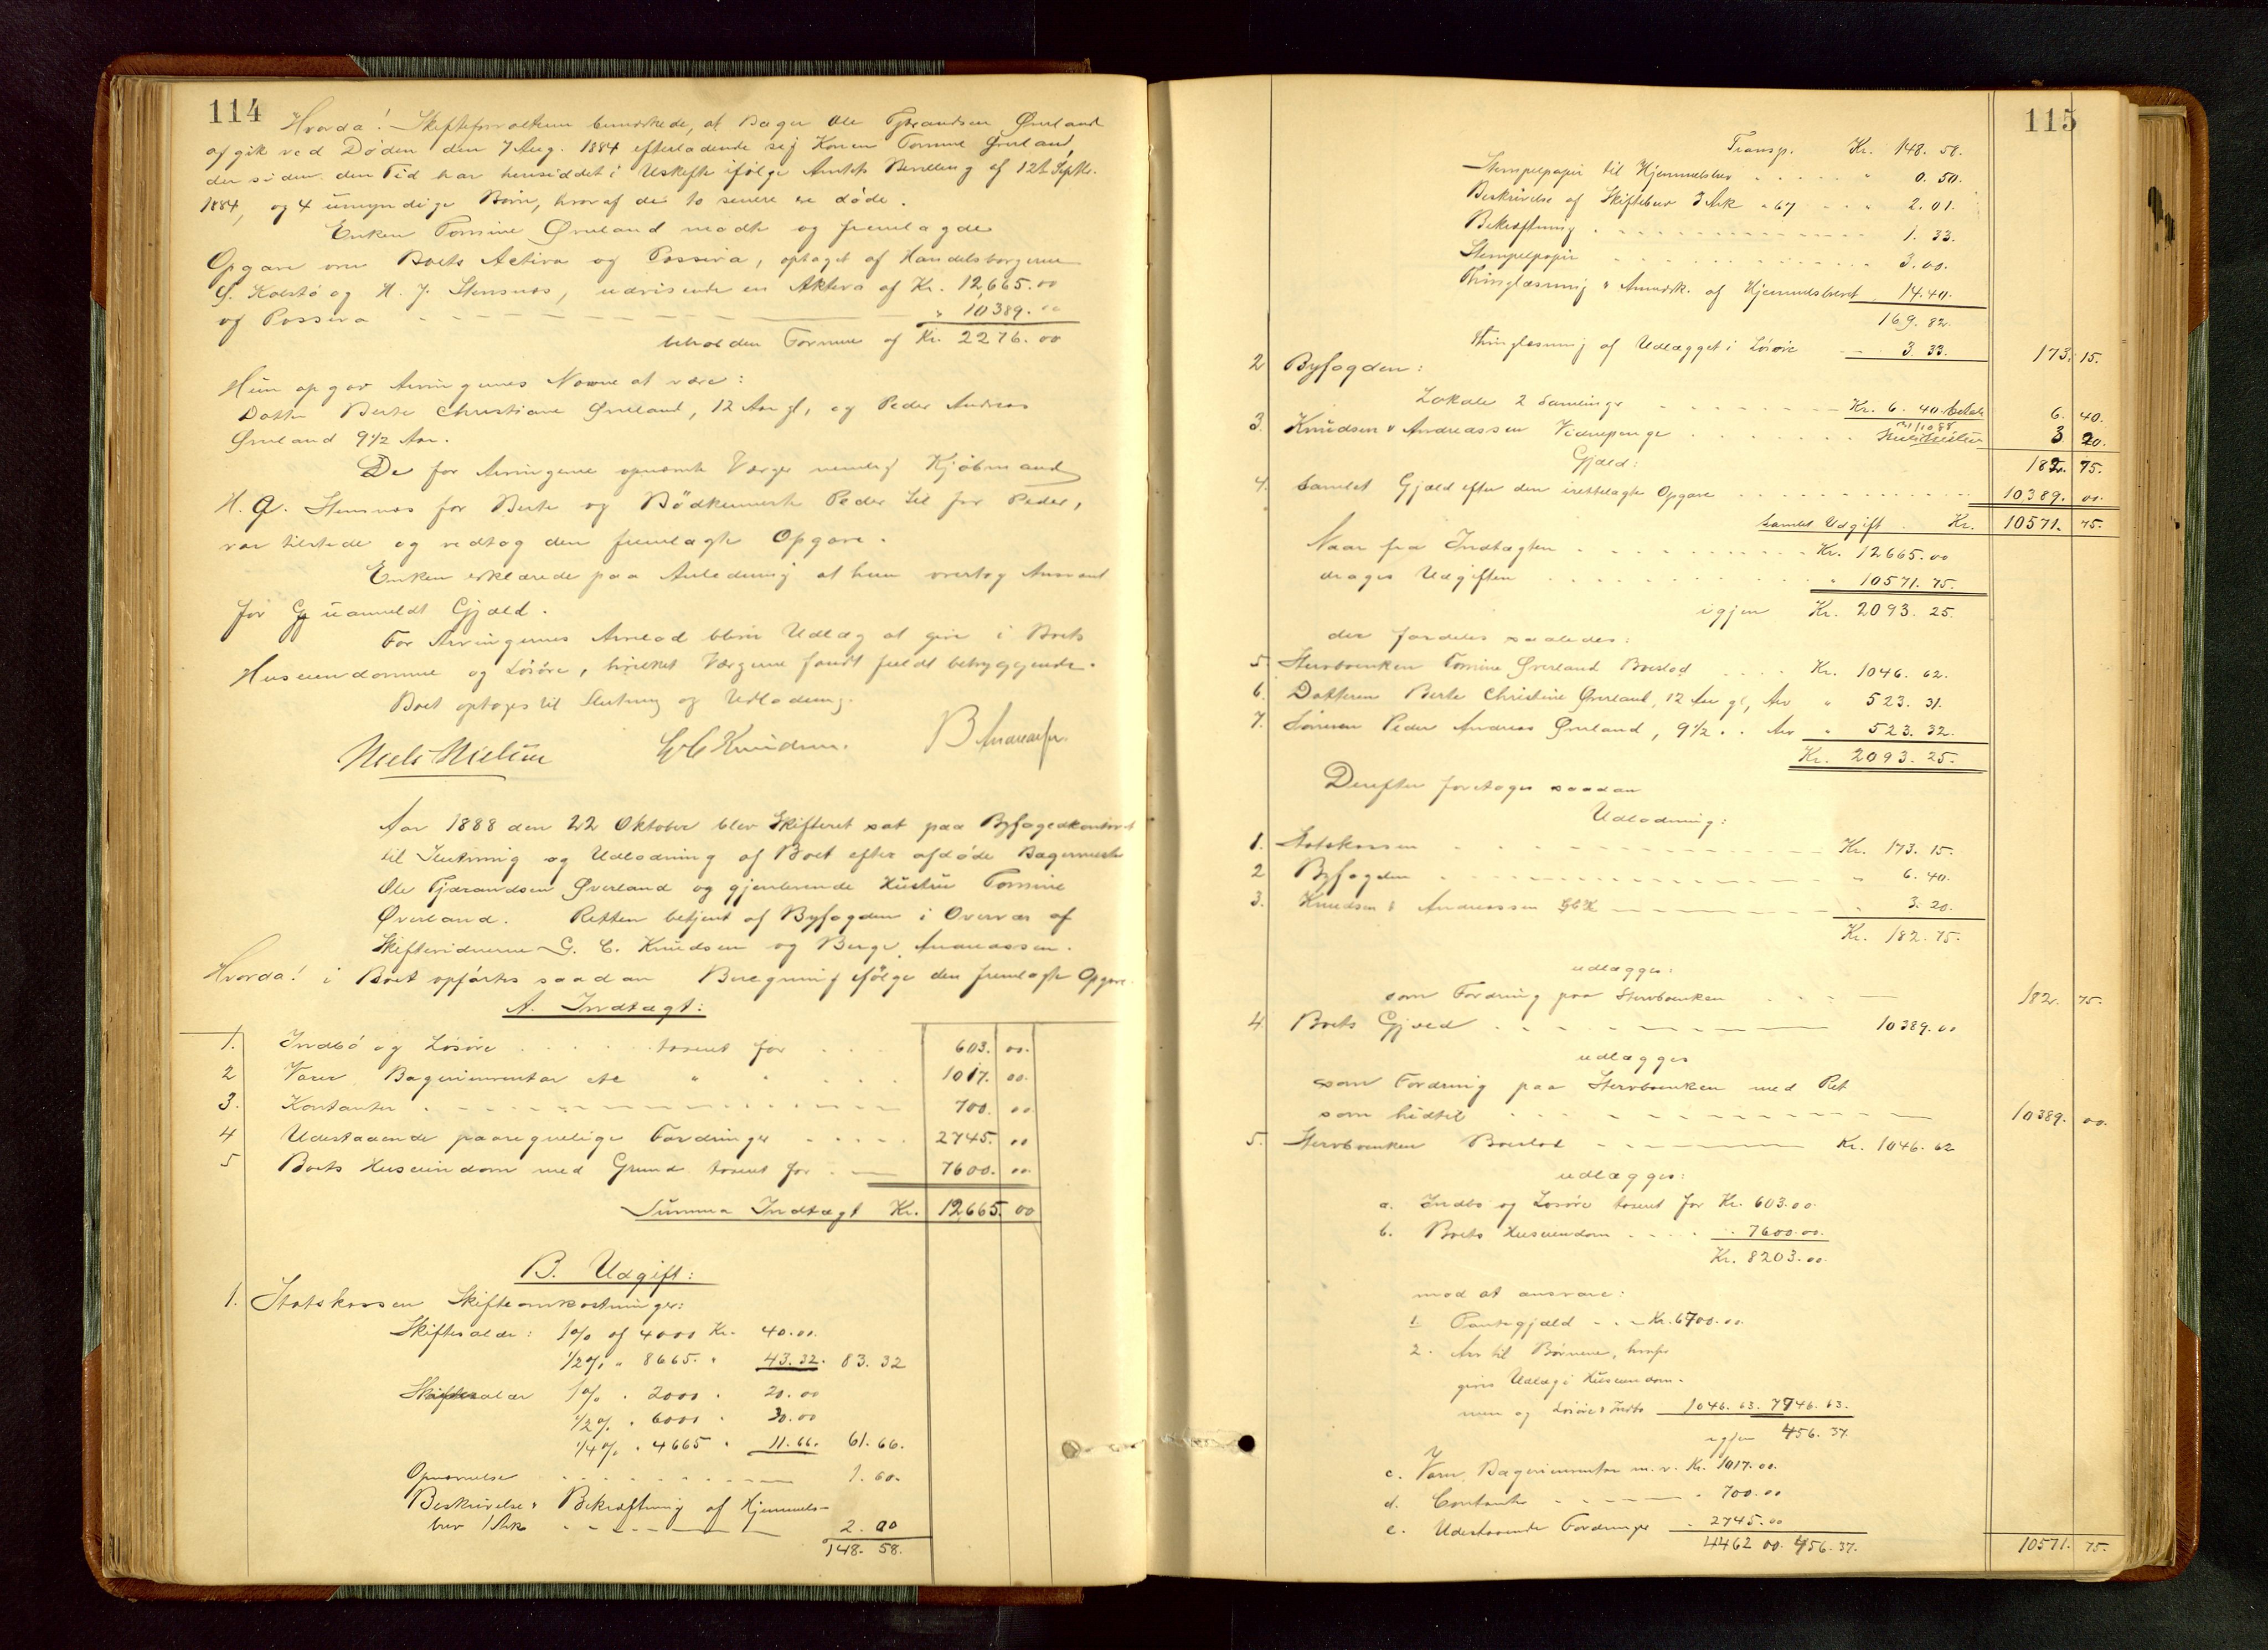 114
Hvorda! Skifteforvalteren bemærkede, at Bager Ole Tjerandsen Øverland
afgik ved Døden den 7 Aug. 1884 efterladende sig Konen Tomine Øverland,
der siden den Tid har hensiddet i Uskifte ifølge Amtets Bevilling af 12te Septbr.
1884, og 4 umyndige Børn, hvoraf de to senere ere døde.
Enken Tomine Øverland mødte og fremlagde
Opgave over Boets Activa og Passiva, optaget af Handelsborgerne
S. Kolstø og H. J. Stensnæs, udvisende en Aktiva af Kr. 12,665.00
og Passiva " 10389.00
beholden Formue af Kr. 2276.00
Hun opgav Arvingernes Navne at være:
Datter Berte Christiane Øverland, 12 Aar gl, og Peder Andreas
Øverland 9 1/2 Aar.
De for Arvingerne opnævnte Værger nemlig Kjøbmand
H. J. Stensnæs for Berte og Bødkermester Peder Lil for Peder,
var tilstede og vedtog den fremlagte Opgave.
Enken erklærede paa Anledning at hun overtog Ansvaret
for uanmeldt Gjæld.
For Arvingernes Arvelod bliver Udlæg at give i Boets
Huseiendomme og Løsøre, hvilket Værgerne fandt fuldt betryggende.
Boet optages til Slutning og Udlodning.
Niels Nielsen G C Knudsen. B Andreassen.
Aar 1888 den 22 Oktober blev Skifteret sat paa Byfogedkontoret
til Slutning og Udlodning af Boet efter afdøde Bagermester
Ole Tjerandsen Øverland og gjenlevende Hustru Tomine
Øverland. Retten betjent af Byfogden i Overvær af
Skiftevidnerne G. C. Knudsen og Berge Andreassen.
Hvorda! i Boet opførtes saadan Beregning ifølge den fremlagte Opgave.
A. Indtægt:
1. Indbo og Løsøre taxeret for 603. 00.
2 Varer, Bageriinventar etc " 1017. 00.
3. Kontanter 700. 00
4 Udestaaende paaregnelige Fordringer 2745. 00
5 Boets Huseiendom med Grund taxeret for 7600. 00.
Summa Indtægt Kr. 12,665. 00
B. Udgift:
1. Statskassen Skifteomkostninger:
Skiftesalær: 1 o/o af 4000 Kr. 40.00.
1/2 o/o " 8665. " 43.32. 83.32
salær 1 o/o " 2000 " 20.00
1/2 o/o " 6000 " 30.00
1/4 o/o " 4665 " 11.66. 61.66.
Opnævnelse 1.60.
Beskrivelse & Bekræftning af Hjemmels-
brev 1 Ark 2.00
148.58.
115
Transp. Kr. 148.58.
Stempelpapir til Hjemmelsbrev " 0.50.
Beskrivelse af Skiftebrev 3 Ark " 67 " 2.01.
Bekræftning 1.33.
Stempelpapir 3.00.
Thinglæsning & Anmærk. af Hjemmelsbrevet 14.40.
169.82.
Thinglæsning af Udlægget i Løsøre 3.33. 173. 15.
2 Byfogden:
Lokale 2 Samlinger Kr. 6.40. betalt 6. 40.
22/10 88
3. Knudsen & Andreassen Vidnepenge Niels Nielsen 3 20.
Gjæld: 182. 75.
4. Samlet Gjæld efter den irettelagte Opgave 10389. 00.
Samlet Udgift Kr. 10571. 75.
Naar fra Indtægten Kr. 12665.00
drages Udgiften " 10571.75.
igjen Kr. 2093.25.
der fordeles saaledes:
5. Stervboenken Tomine Øverland Boeslod Kr. 1046.62.
6. Datteren Berte Christine Øverland, 12 Aar gl, Arv " 523.31.
7. Sønnen Peder Andreas Øverland, 9 1/2 " " Arv " 523.32.
Kr. 2093.25.
Derefter foretages saadan
Udlodning:
1. Statskassen Kr. 173.15.
2 Byfogden " 6.40.
3. Knudsen & Andreassen GCK " 3.20.
Kr. 182.75.
udlægges:
som Fordring paa Stervboenken 182. 75.
4. Boets Gjæld 10389.00
udlægges
som Fordring paa Stervboenken med Ret
som hidtil 10389. 00.
5. Stervboenken Boeslod Kr. 1046.62
udlægges:
a. Indbo og Løsøre taxeret for Kr. 603.00.
b. Boets Huseiendom " 7600.00.
Kr. 8203.00.
mod at ansvare:
1. Pantegjæld Kr. 6700.00.
2. Arv til Børnene, hvorfor
gives Udlæg i Huseiendom-
men og Løsøre & Indbo 1046.63. 7746.63.
igjen 456.37.
c. Varer, Bageriinventar m. v. Kr. 1017.00.
d. Contanter " 700.00
e. Udestaaende Fordringer " 2745.00
4462.00. 456.37. 10571. 75.